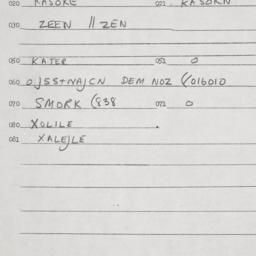 020 KASOKE 021 KASOKN
030 ZEEN // ZEN
050 KATER 051 0
060 OJSS+NAJCN DEM NOZ (/016010
070 SMORK (838 072 0
080 XOLILE
081 XALEJLE